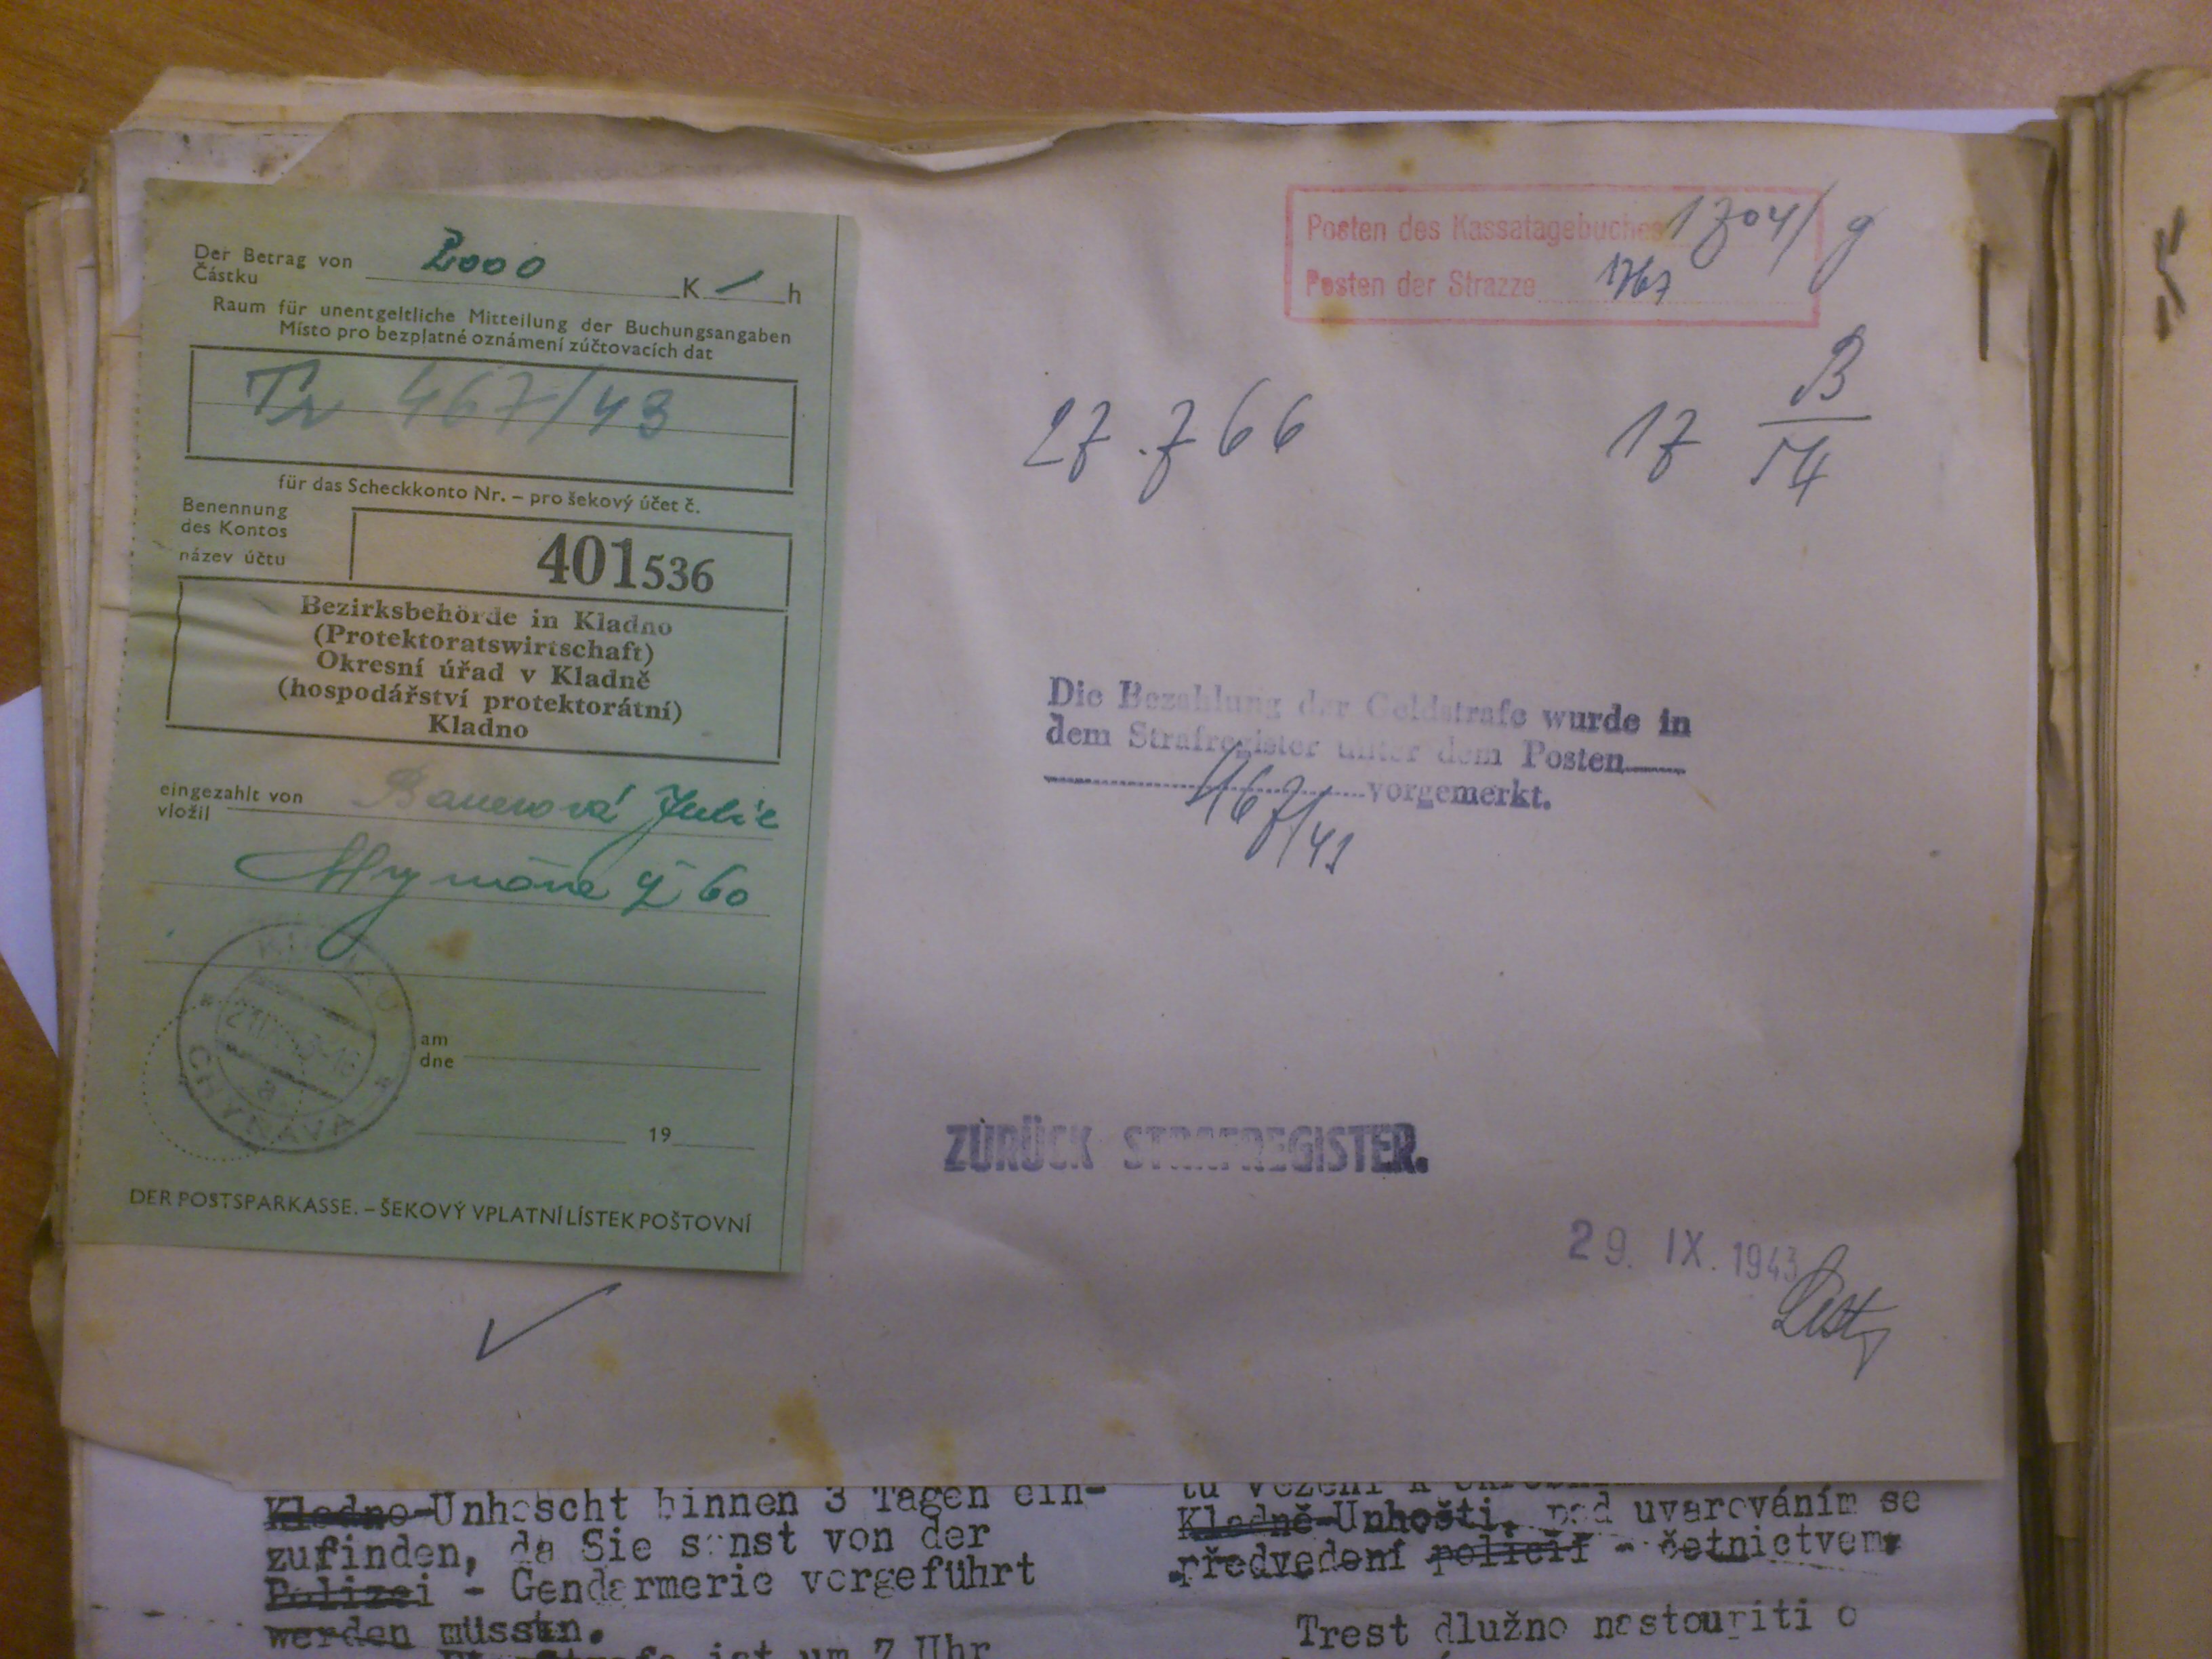 Der Betrag von 2000 K — h
Částku
Raum für unentgeltliche Mitteilung der Buchungsangaben
Místo pro bezplatné oznámení zúčtovacích dat
Tr 467/43
für das Scheckkonto Nr. – pro šekový účet č.
Benennung
des Kontos
název účtu
401536
Bezirksbehörde in Kladno
(Protektoratswirtschaft)
Okresní úřad v Kladně
(hospodářství protektorátní)
Kladno
eingezahlt von Bauerová Julie
vložil
č 60
CHYŇAVA
am
dne
19
DER POSTSPARKASSE. – ŠEKOVÝ VPLATNÍ LÍSTEK POŠTOVNÍ
Posten des Kassatagebuches 1704/g
Posten der Strazze 1767
27.766
17 B
Die Bezahlung der Geldstrafe wurde in
dem Strafregister unter dem Posten
467/43 vorgemerkt.
ZURÜCK STRAFREGISTER.
29. IX. 1943
Kladno-Unhoscht binnen 3 Tagen ein-
zufinden, da Sie sonst von der
Polizei - Gendarmerie vorgeführt
werden müssen.
ist um 7 Uhr
tu vězení k
Kladně-Unhošti, pod uvarováním se
předvedení policií - četnictvem.
Trest dlužno nastoupiti o